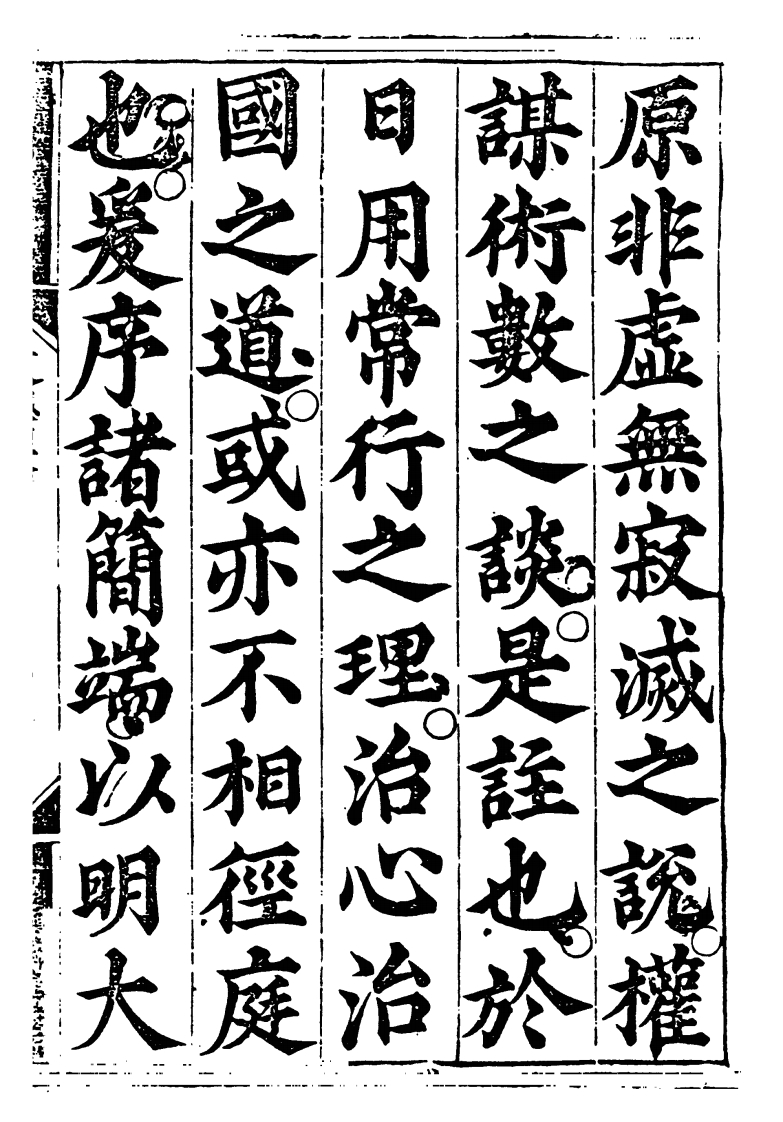 原非虛無寂滅之說。權
謀術數之談。是註也。於
日用常行之理。治心治
國之道。或亦不相徑庭
也。爰序諸簡端以明大